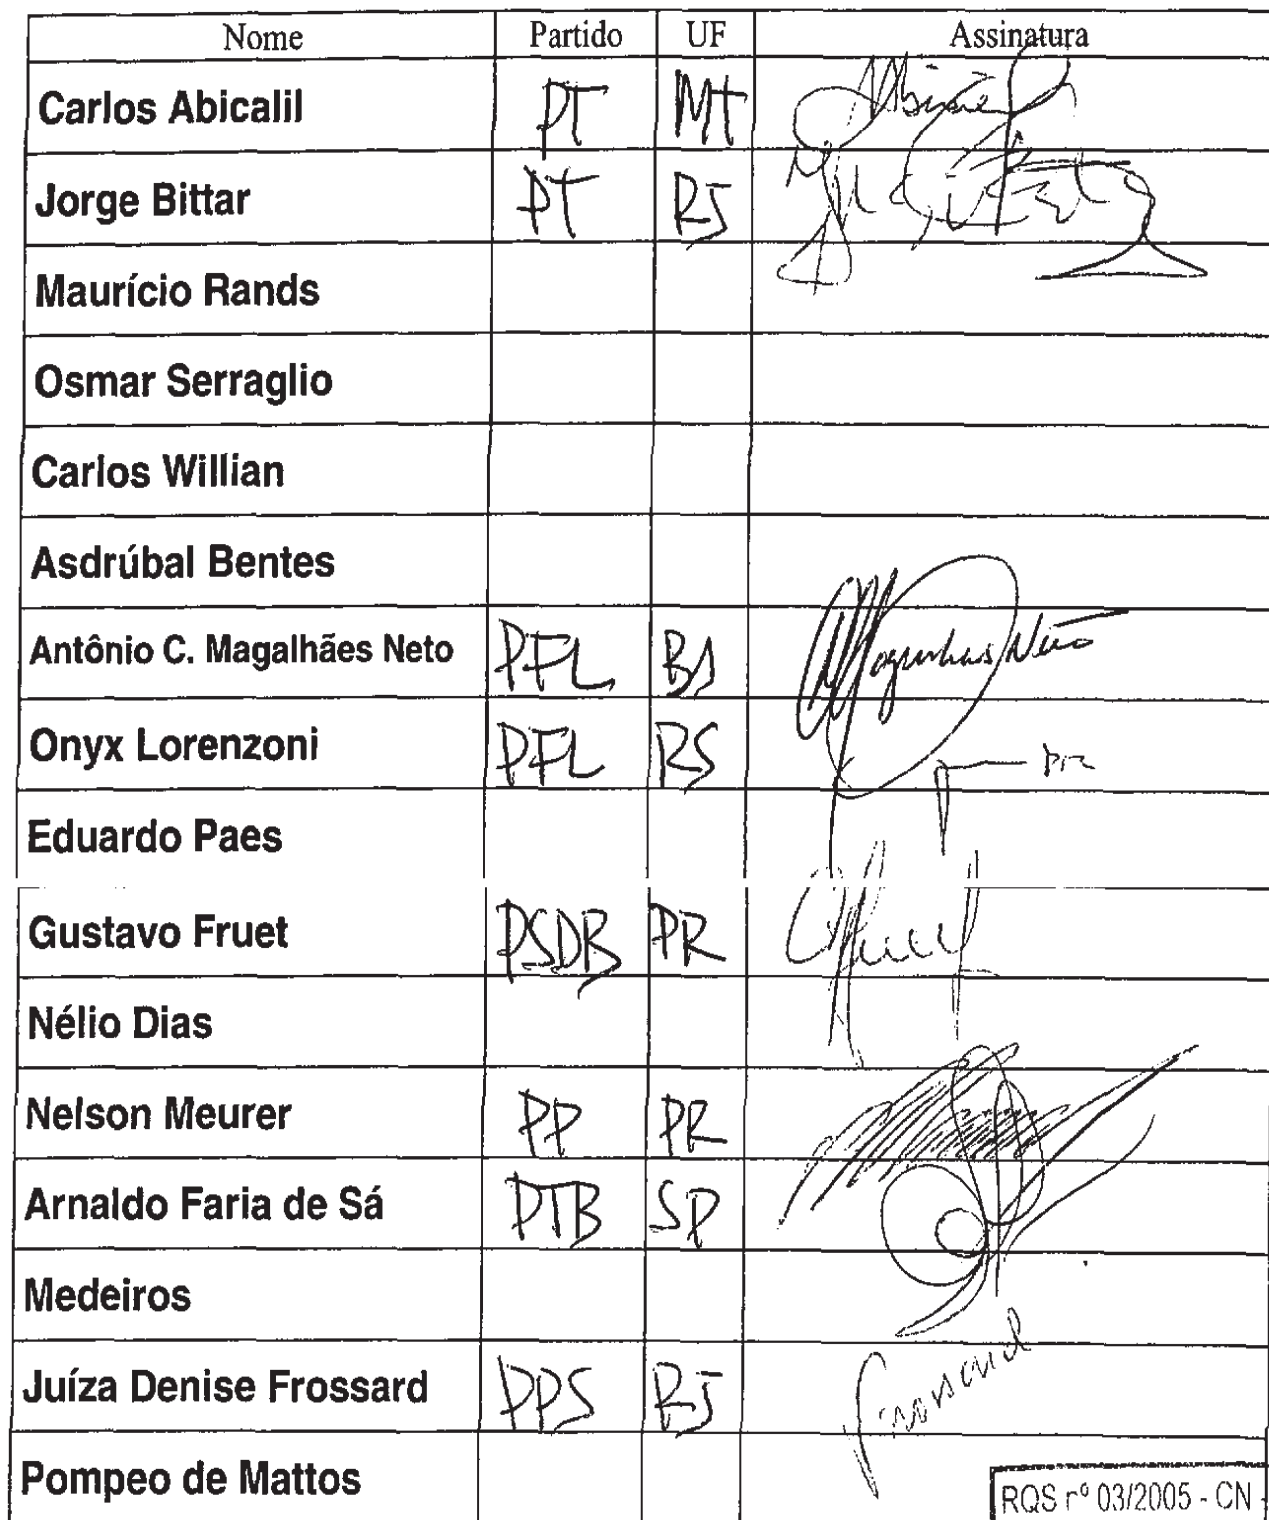 Nome Partido UF Assinatura
Carlos Abicalil PT MT
Jorge Bittar PT RJ
Maurício Rands
Osmar Serraglio
Carlos Willian
Asdrúbal Bentes
Antônio C. Magalhães Neto PFL BA Magalhães Neto
Onyx Lorenzoni PFL RS
Eduardo Paes
Gustavo Fruet PSDB PR
Nélio Dias
Nelson Meurer PP PR
Arnaldo Faria de Sá PTB SP
Medeiros
Juíza Denise Frossard PPS RJ
Pompeo de Mattos
RQS nº 03/2005 - CN -